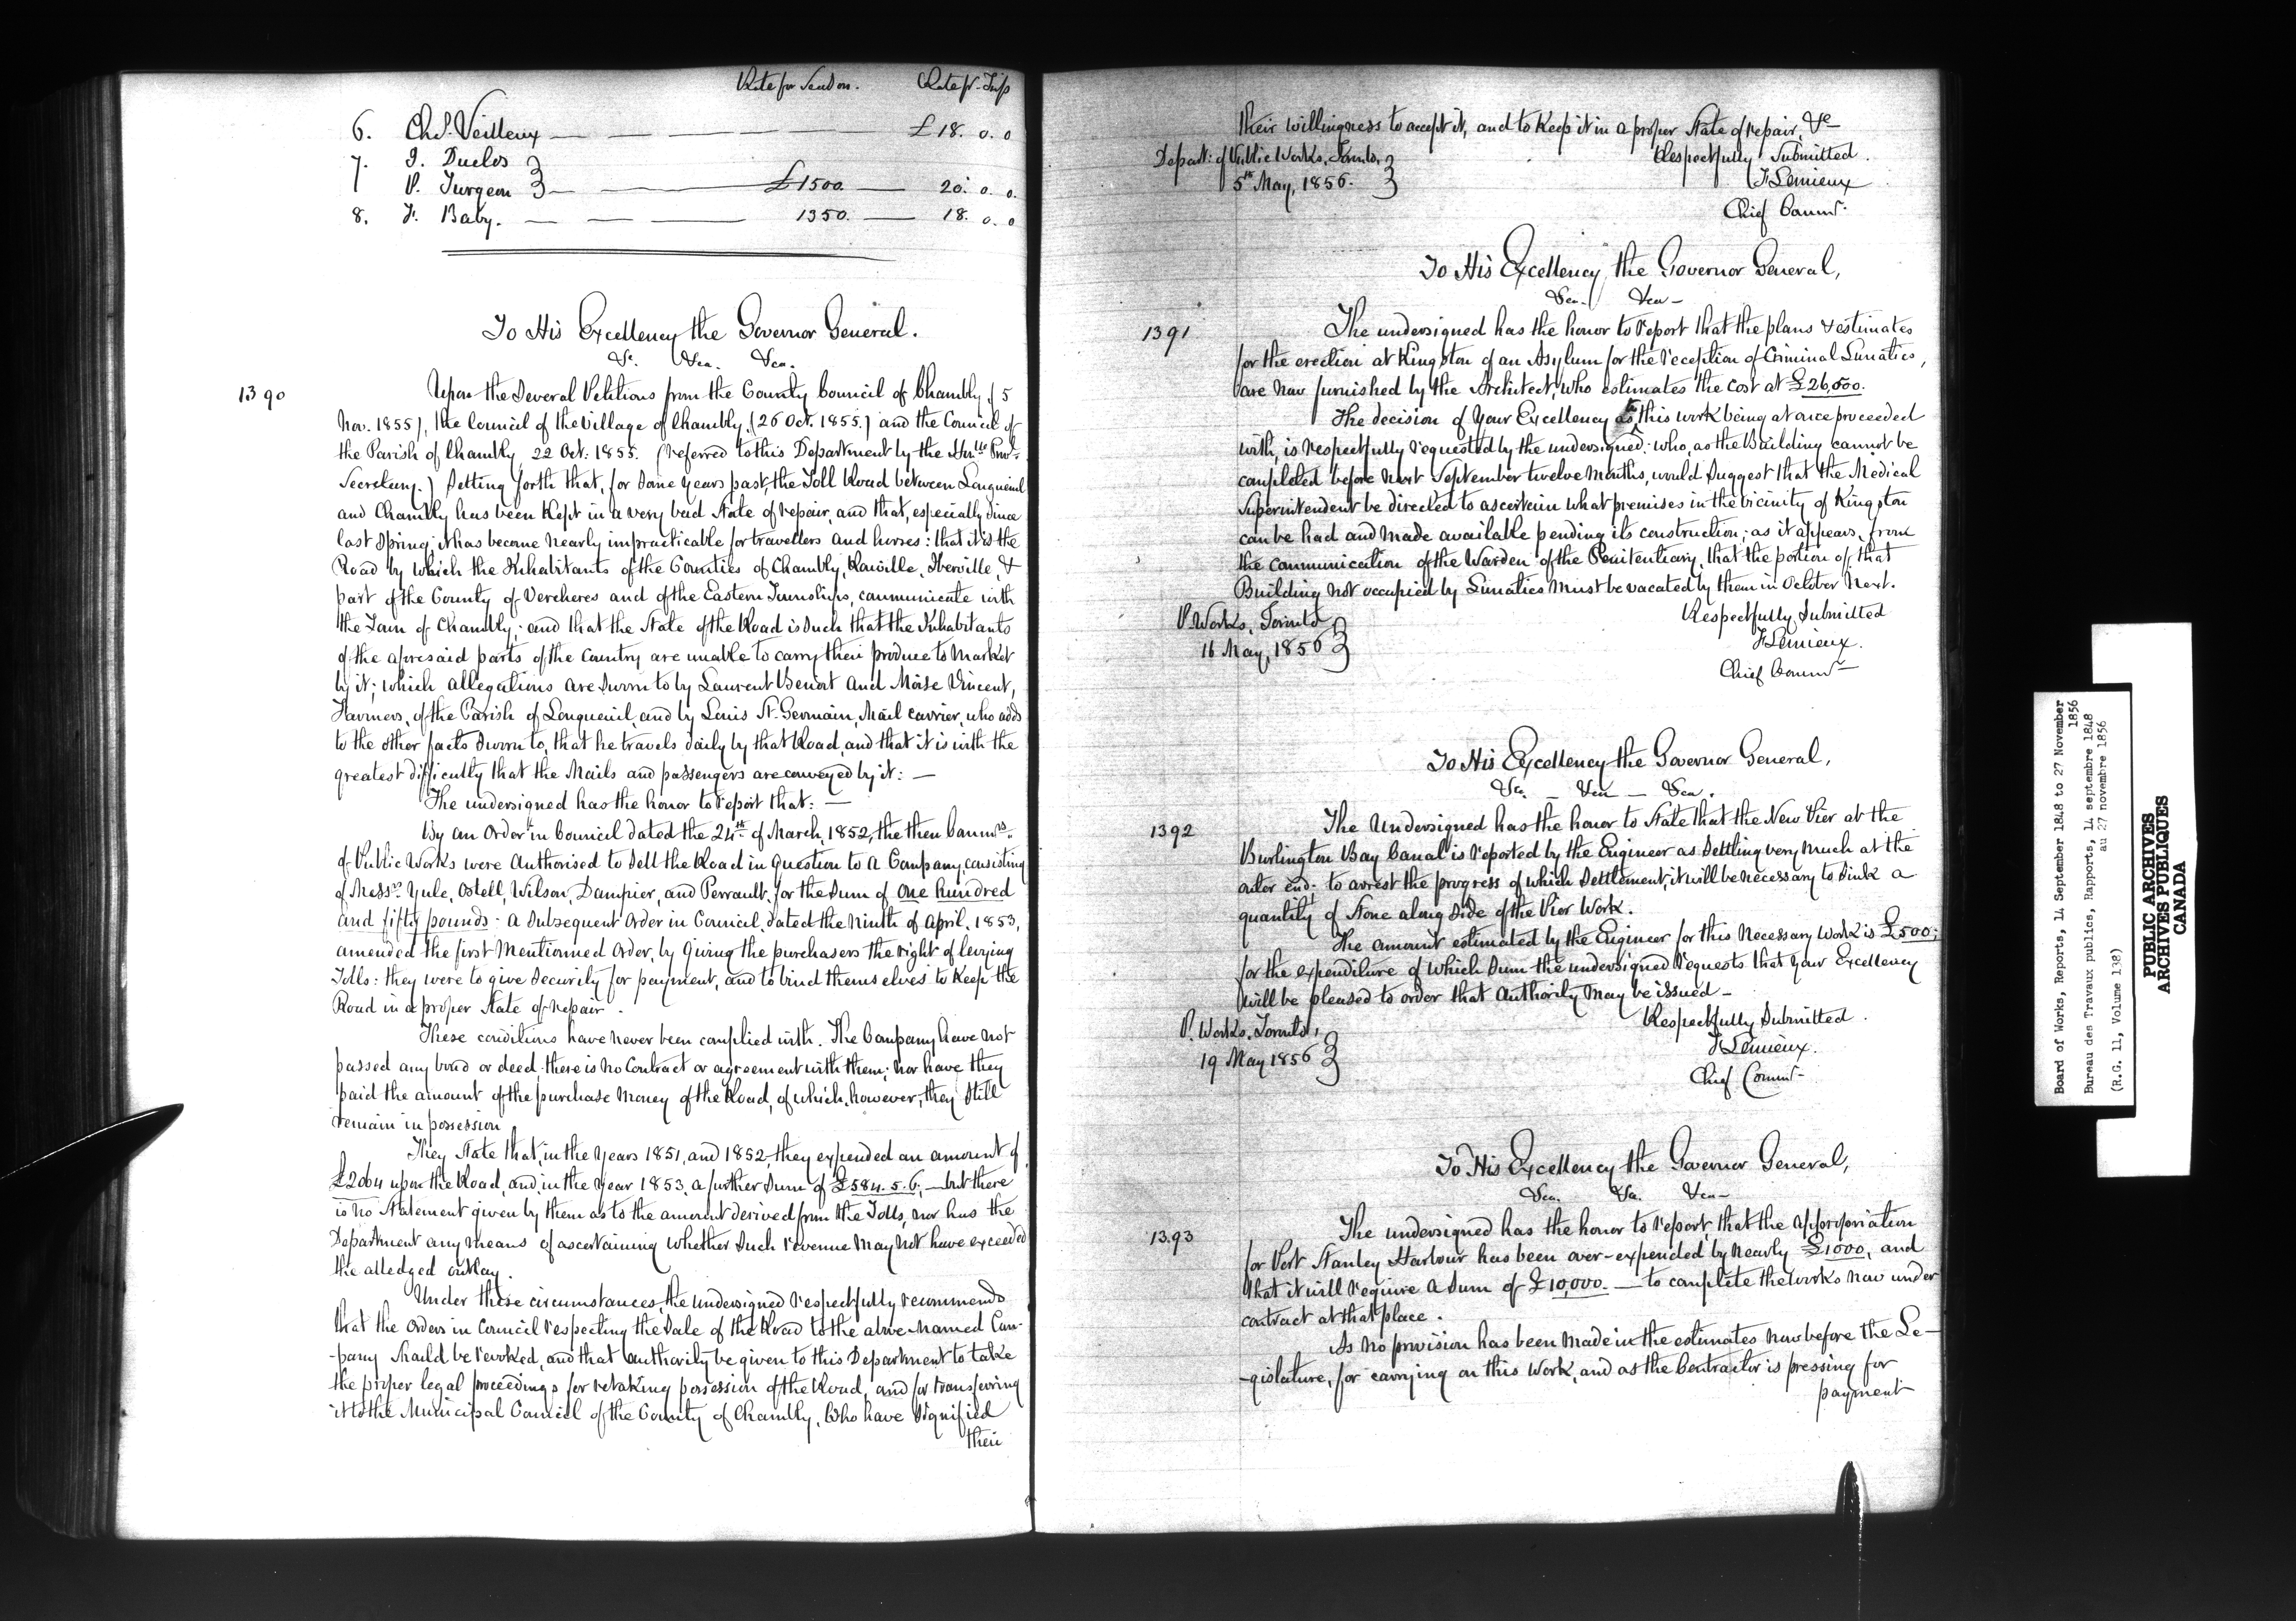 Rate for Season. Rate pr. Trip
6. Chs. Veilleux — — — — £18. 0. 0
7. J. Duclos }
P. Turgeon } — — £1500. — 20. 0. 0.
8. F. Baby. — — — 1350. — 18. 0. 0
To His Excellency the Governor General.
&c. &ca. &ca.
1390
Upon the Several Petitions from the County Council of Chambly, (5
Nov. 1855), the Council of the Village of Chambly, (26 Oct. 1855.) and the Council of
the Parish of Chambly, 22 Oct: 1855. (referred to this Department by the Honble Provl.
Secretary.) Setting forth that, for some years past, the Toll Road between Longueuil
and Chambly has been kept in a very bad State of repair, and that, especially since
last Spring, it has become nearly impracticable for travellers and horses: that it is the
Road by which the Inhabitants of the Counties of Chambly, Rouville, Iberville, &
part of the County of Vercheres and of the Eastern Townships, communicate with
the Town of Chambly; and that the State of the Road is such that the Inhabitants
of the aforesaid parts of the Country are unable to carry their produce to Market
by it; which allegations are sworn to by Laurent Benoit and Moïse Vincent,
Farmers, of the Parish of Longueuil, and by Louis St. Germain, Mail Carrier, who adds
to the other facts sworn to, that he travels daily by that Road, and that it is with the
greatest difficulty that the Mails and passengers are conveyed by it: —
The undersigned has the honor to report that: —
By an Order in Council dated the 24th of March, 1852, the then Commrs.
of Public Works were authorised to sell the Road in question to a Company, consisting
of Messrs. Yule, Ostell, Wilson, Dampier, and Perrault, for the Sum of One hundred
and fifty pounds - A subsequent Order in Council, dated the Ninth of April, 1853,
amended the first Mentionned Order, by giving the purchasers the right of levying
Tolls: they were to give Security for payment, and to bind themselves to keep the
Road in a proper State of repair.
These conditions have never been complied with. The Company have not
passed any bond or deed - there is no Contract or agreement with them; nor have they
paid the amount of the purchase Money of the Road, of which, however, they still
remain in possession
They State that, in the Years 1851, and 1852, they expended an amount of
£2064 upon the Road, and, in the Year 1853, a further Sum of £584. 5. 6; — but there
is no Statement given by them as to the amount derived from the Tolls, nor has the
Department any means of ascertaining whether such revenue may not have exceeded
the alledged outlay.
Under these circumstances, the undersigned respectfully recommends
that the Orders in Council respecting the Sale of the Road to the above named Com-
-pany should be revoked, and that authority be given to this Department to take
the proper legal proceedings for retaking possession of the Road, and for transferring
it to the Municipal Council of the County of Chambly, who have signified
their
their willingness to accept it, and to keep it in a proper State of repair, &c—
Depart: of Public Works, Toronto, }
5th May, 1856. }
Respectfully Submitted.
F Lemieux
Chief Commr.
To His Excellency, the Governor General,
&ca. &ca—
1391
The undersigned has the honor to report that the plans & estimates
for the erection at Kingston of an Asylum for the reception of Criminal Lunatics,
are now furnished by the Architect, who estimates the cost at £26,500.
The decision of Your Excellency as to this work being at once proceeded
with, is respectfully requested by the undersigned: who, as the Building cannot be
completed before next September twelve months, would suggest that the Medical
Superintendent be directed to ascertain what premises in the vicinity of Kingston
can be had and made available pending its construction; as it appears, from
the communication of the Warden of the Penitentiary, that the portion of that
Building not occupied by Lunatics must be vacated by them in October next.
P. Works, Toronto }
16 May, 1856 }
Respectfully Submitted
F Lemieux.
Chief Commr—
To His Excellency the Governor General,
&ca. — &ca — &ca.
1392
The Undersigned has the honor to State that the New Pier at the
Burlington Bay Canal is reported by the Engineer as settling very much at the
outer end: to arrest the progress of which settlement, it will be necessary to sink a
quantity of Stone along side of the Pier Work.
The amount estimated by the Engineer for this necessary Work is £500;
for the expenditure of which Sum the undersigned requests that Your Excellency
will be pleased to order that authority may be issued —
P. Works, Toronto, }
19 May 1856 }
Respectfully Submitted.
F Lemieux.
Chief Commr—
To His Excellency the Governor General,
&ca. &a. &ca—
1393
The undersigned has the honor to report, that the appropriation
for Port Stanley Harbour has been over-expended, by nearly £1000, and
that it will require a sum of £10,000. — to complete the works now under
contract at that place.
As no provision has been made in the estimates now before the Le—
-gislature, for carrying on this Work, and as the Contractor is pressing for
payment
Board of Works, Reports, 14 September 1848 to 27 November
1856
Bureau des Travaux publics, Rapports, 14 septembre 1848
au 27 novembre 1856
(R.G. 11, Volume 138)
PUBLIC ARCHIVES
ARCHIVES PUBLIQUES
CANADA